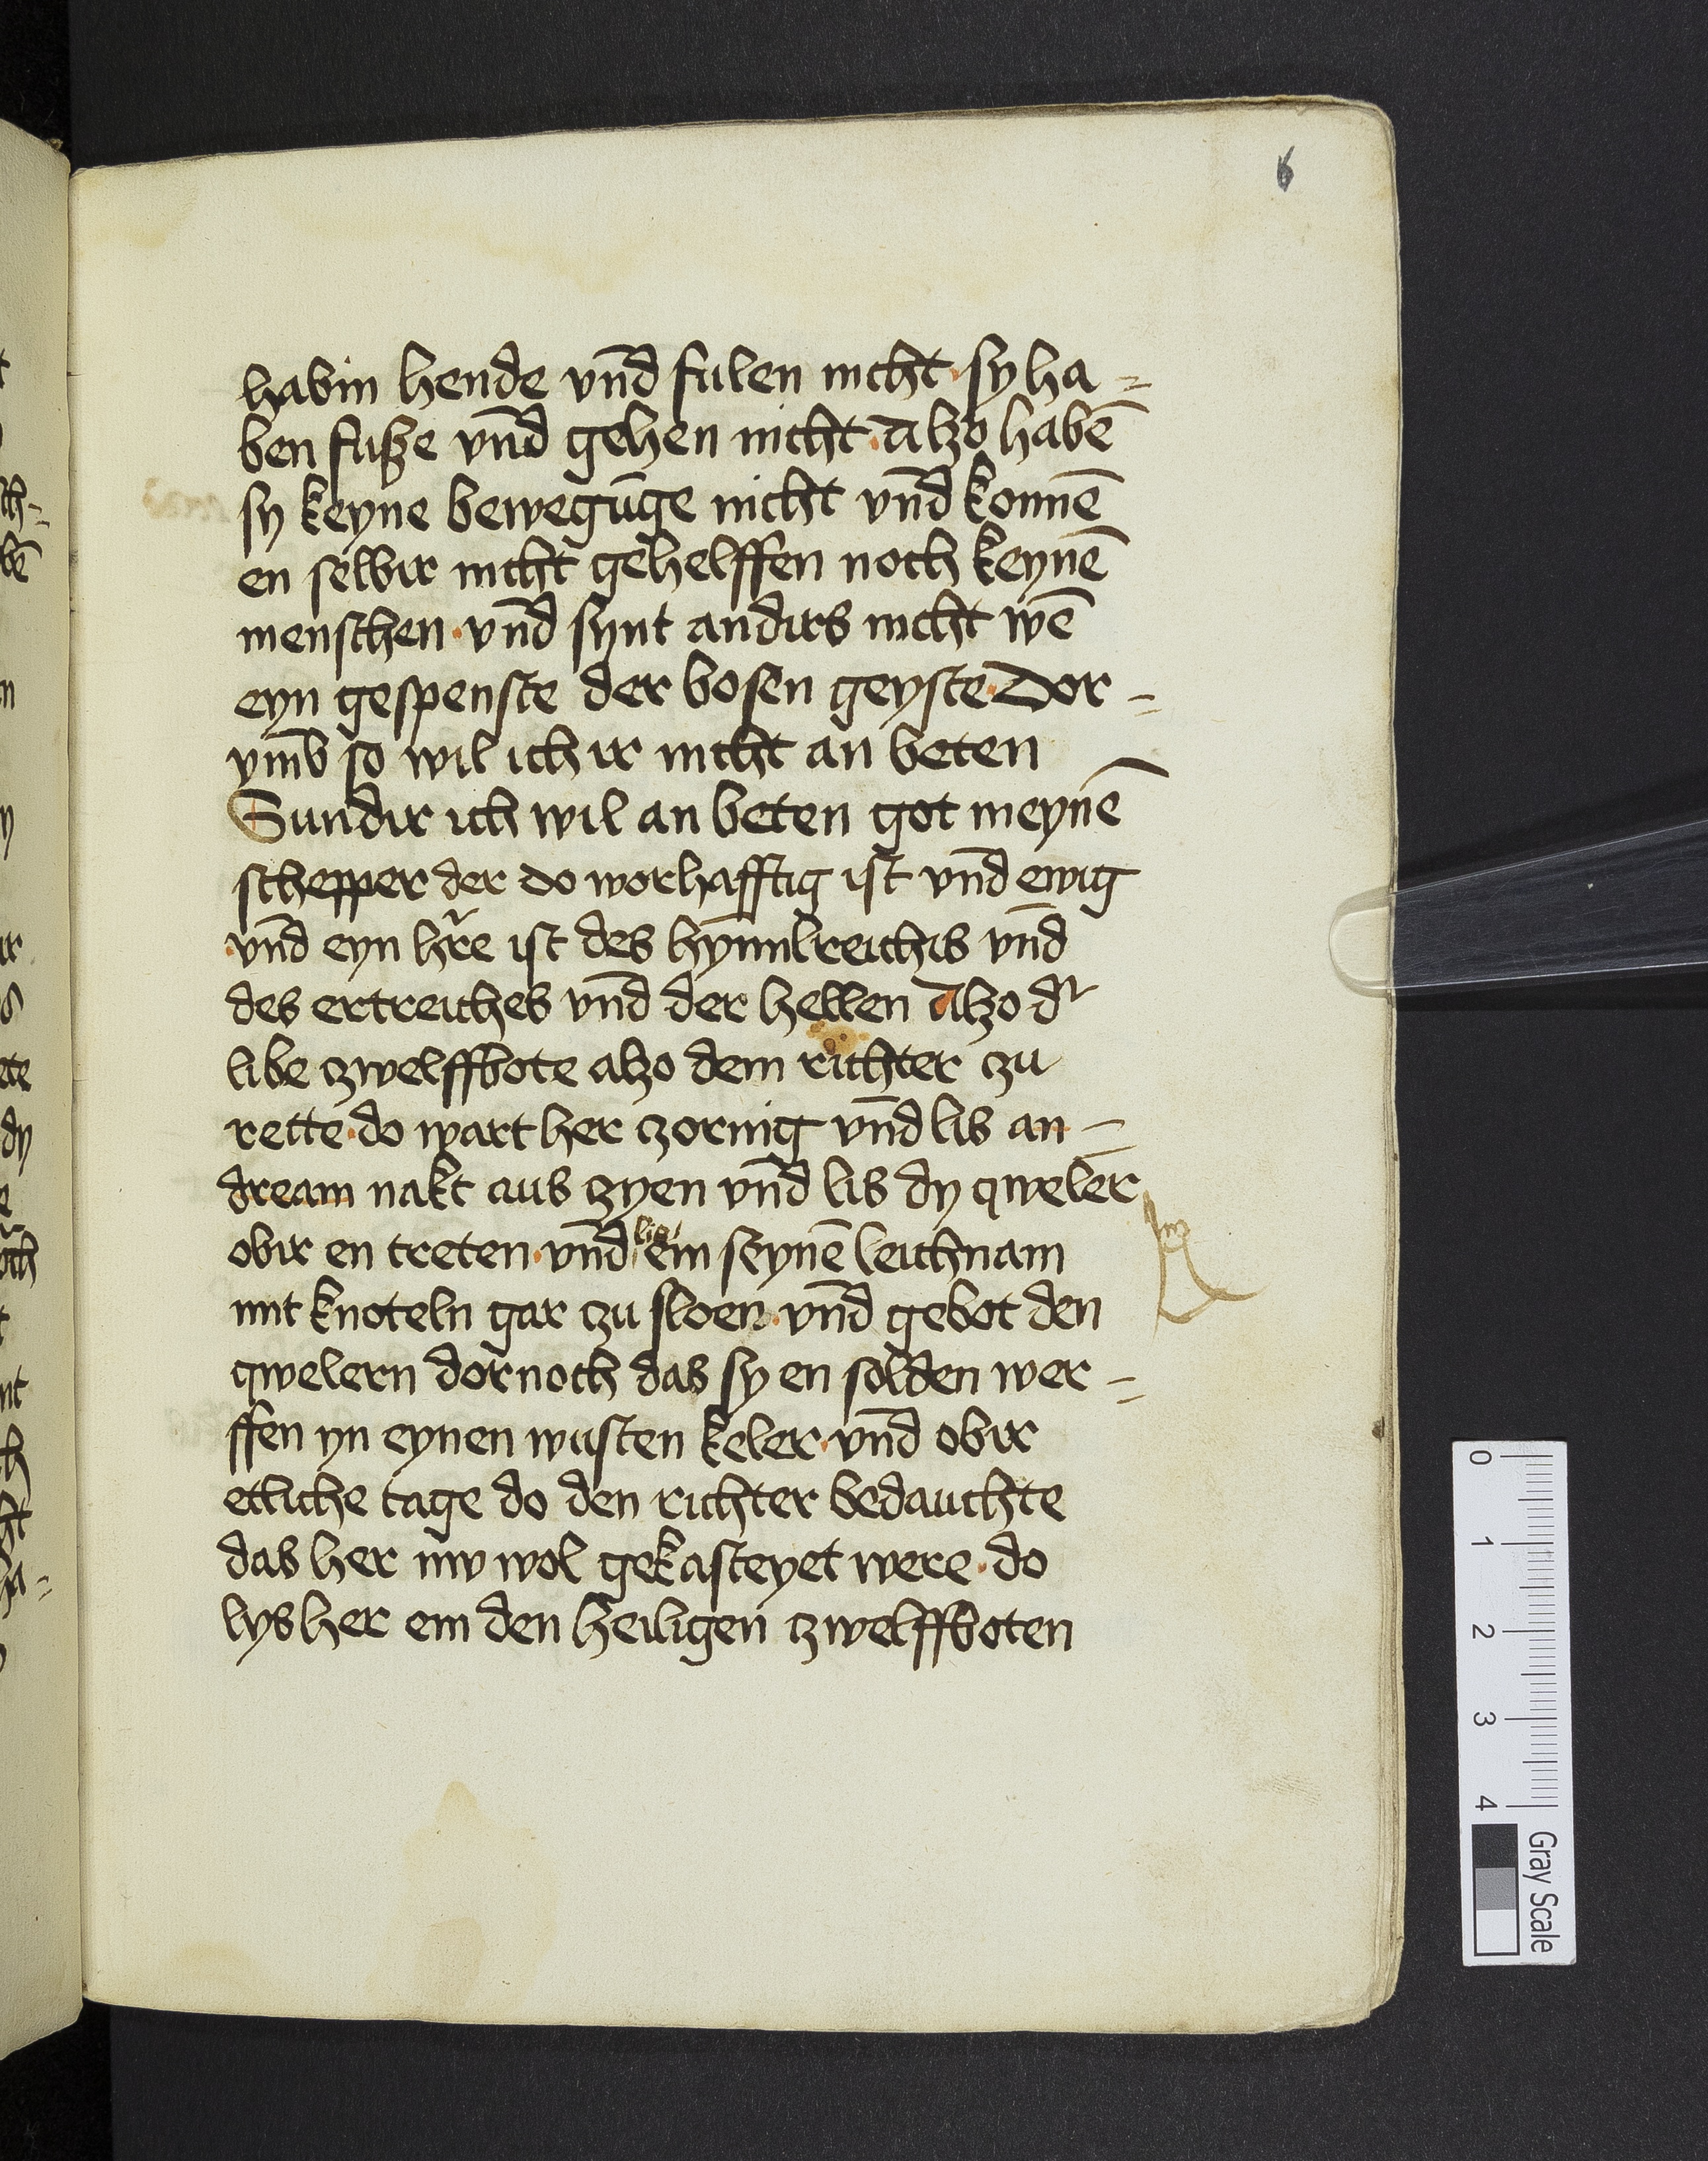 6
habin hende vn̄d fulen nicht · sy ha=
ben fusze vn̄d gehen nicht · Alzo habē
sy keyne bewegūge nicht vn̄d konnē
en selbir nicht gehelffen noch keynē
menschen · vn̄d synt andirs nicht wē
eyn gespenste der bosen geyste · Dor=
vm̄b so wil ich ir nicht an beten
Sundir ich wil an beten got meynē
schepper der do worhafftig ist vn̄d ewig
vn̄d eyn hr̃e ist des hym̄ilreichis vn̄d
des ertreiches vn̄d der hellen Alzo dʳ
libe zwelffbote alzo dem richter zu
rette · do wart her zornig vn̄d lis an=
dream nakt aus zyen vn̄d lis dy qweler
obir en treten · vn̄d lis em seynē leichnam
mit knoteln gar zu sloen · vn̄d gebot den
qwelern dornoch das sy en solden wer=
ffen yn eynen wusten keler · vn̄d obir
etliche tage do den richter bedauchte
das her nw wol gekasteyet were · do
lys her em den heiligen zwelffboten
0 1 2 3 4
Gray Scale